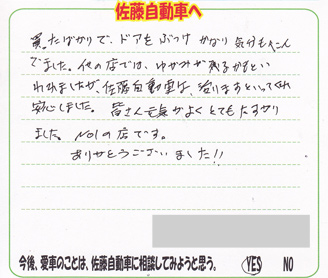 佐藤自動車へ
買ったばかりで、ドアをぶつけ かなり 気分もへこん
でました。他の店では、ゆがみが残るかもとい
われましたが、佐藤自動車は、治りますといってくれ
安心しました。皆さん元気がよくとてもたすかり
ました。No1の店です。
ありがとうございました!!
今後、愛車のことは、佐藤自動車に相談してみようと思う。 YES NO